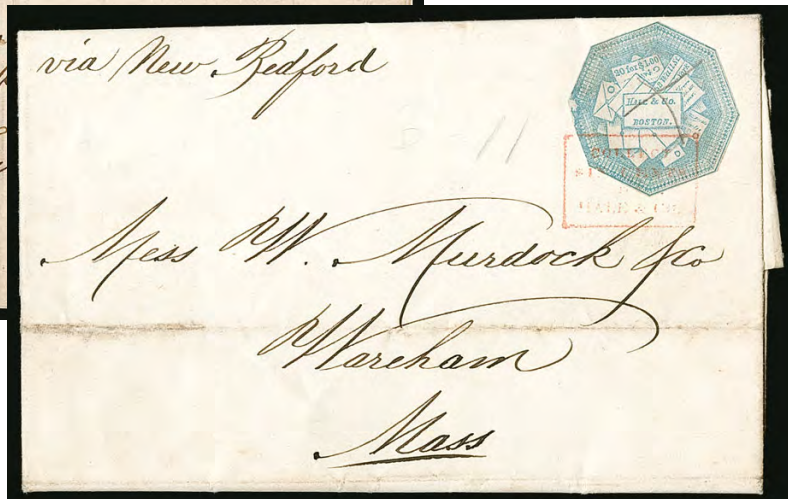 via New Bedford
20 for $1.00
HALE & Co.
BOSTON.
COLLECT
HALE & CO.
Mess W. Murdock & Co
Wareham
Mass